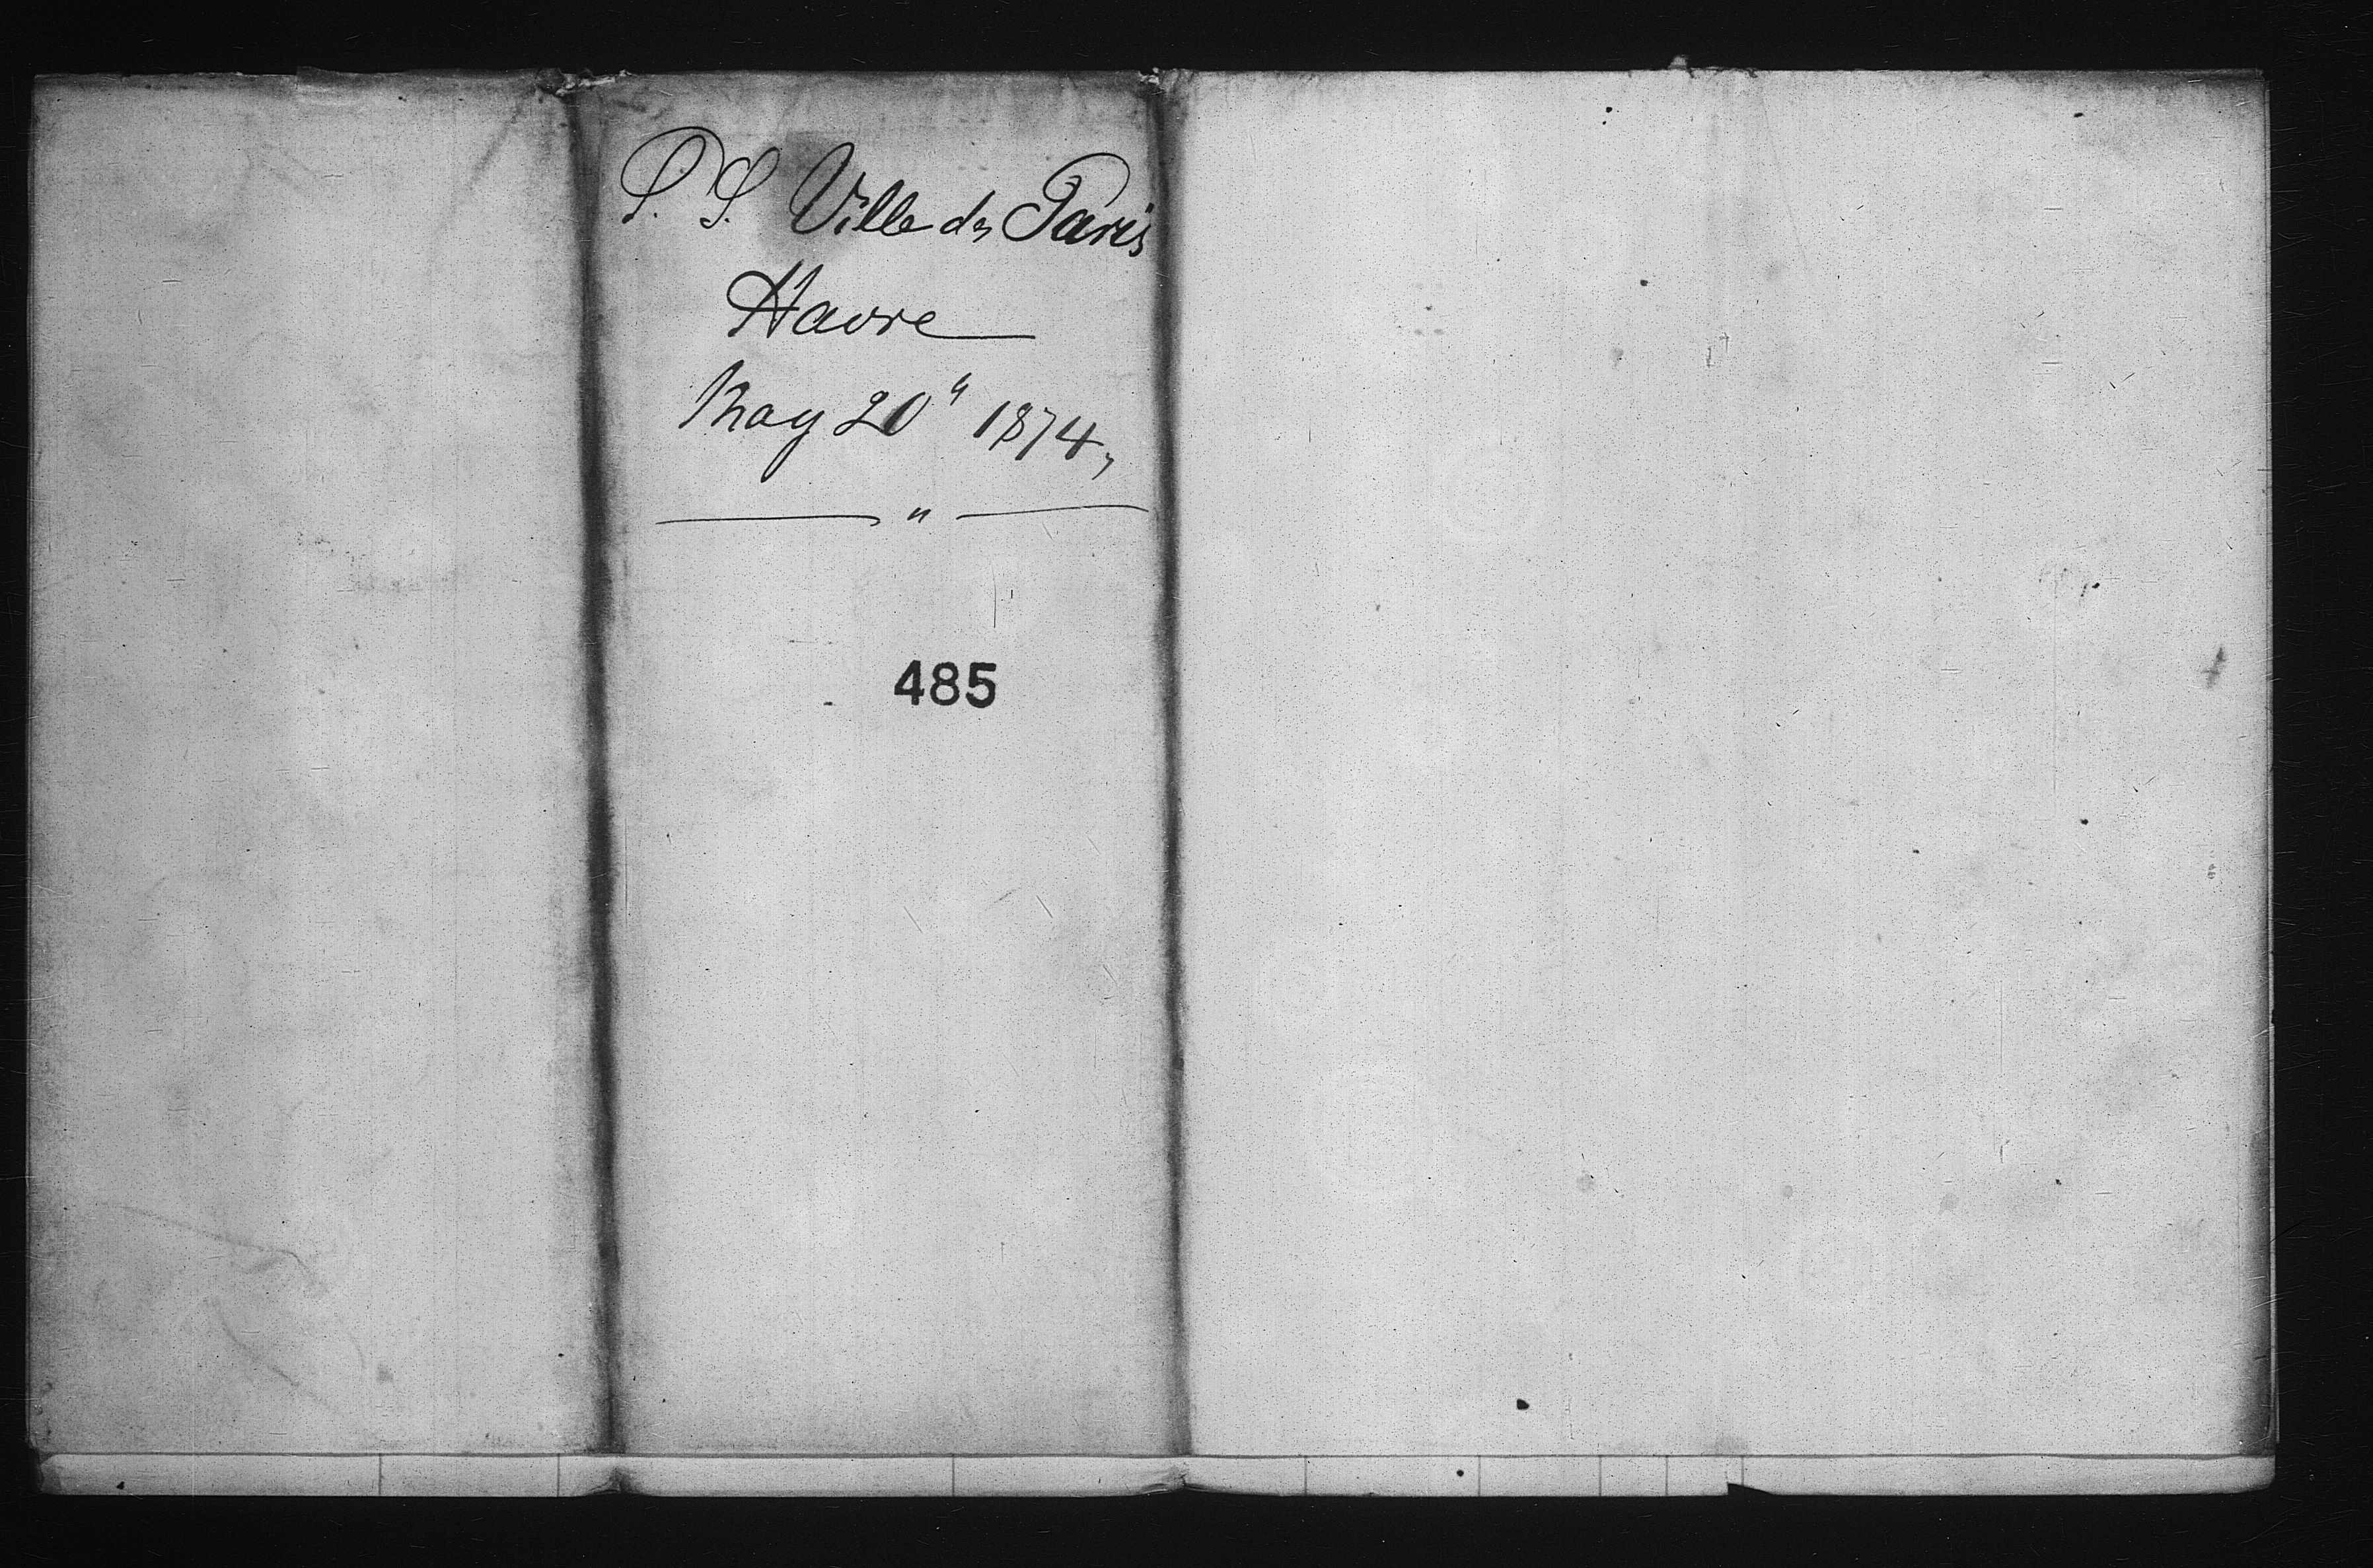 S. S. Ville de Paris
Havre
May 20" 1874,
"
485